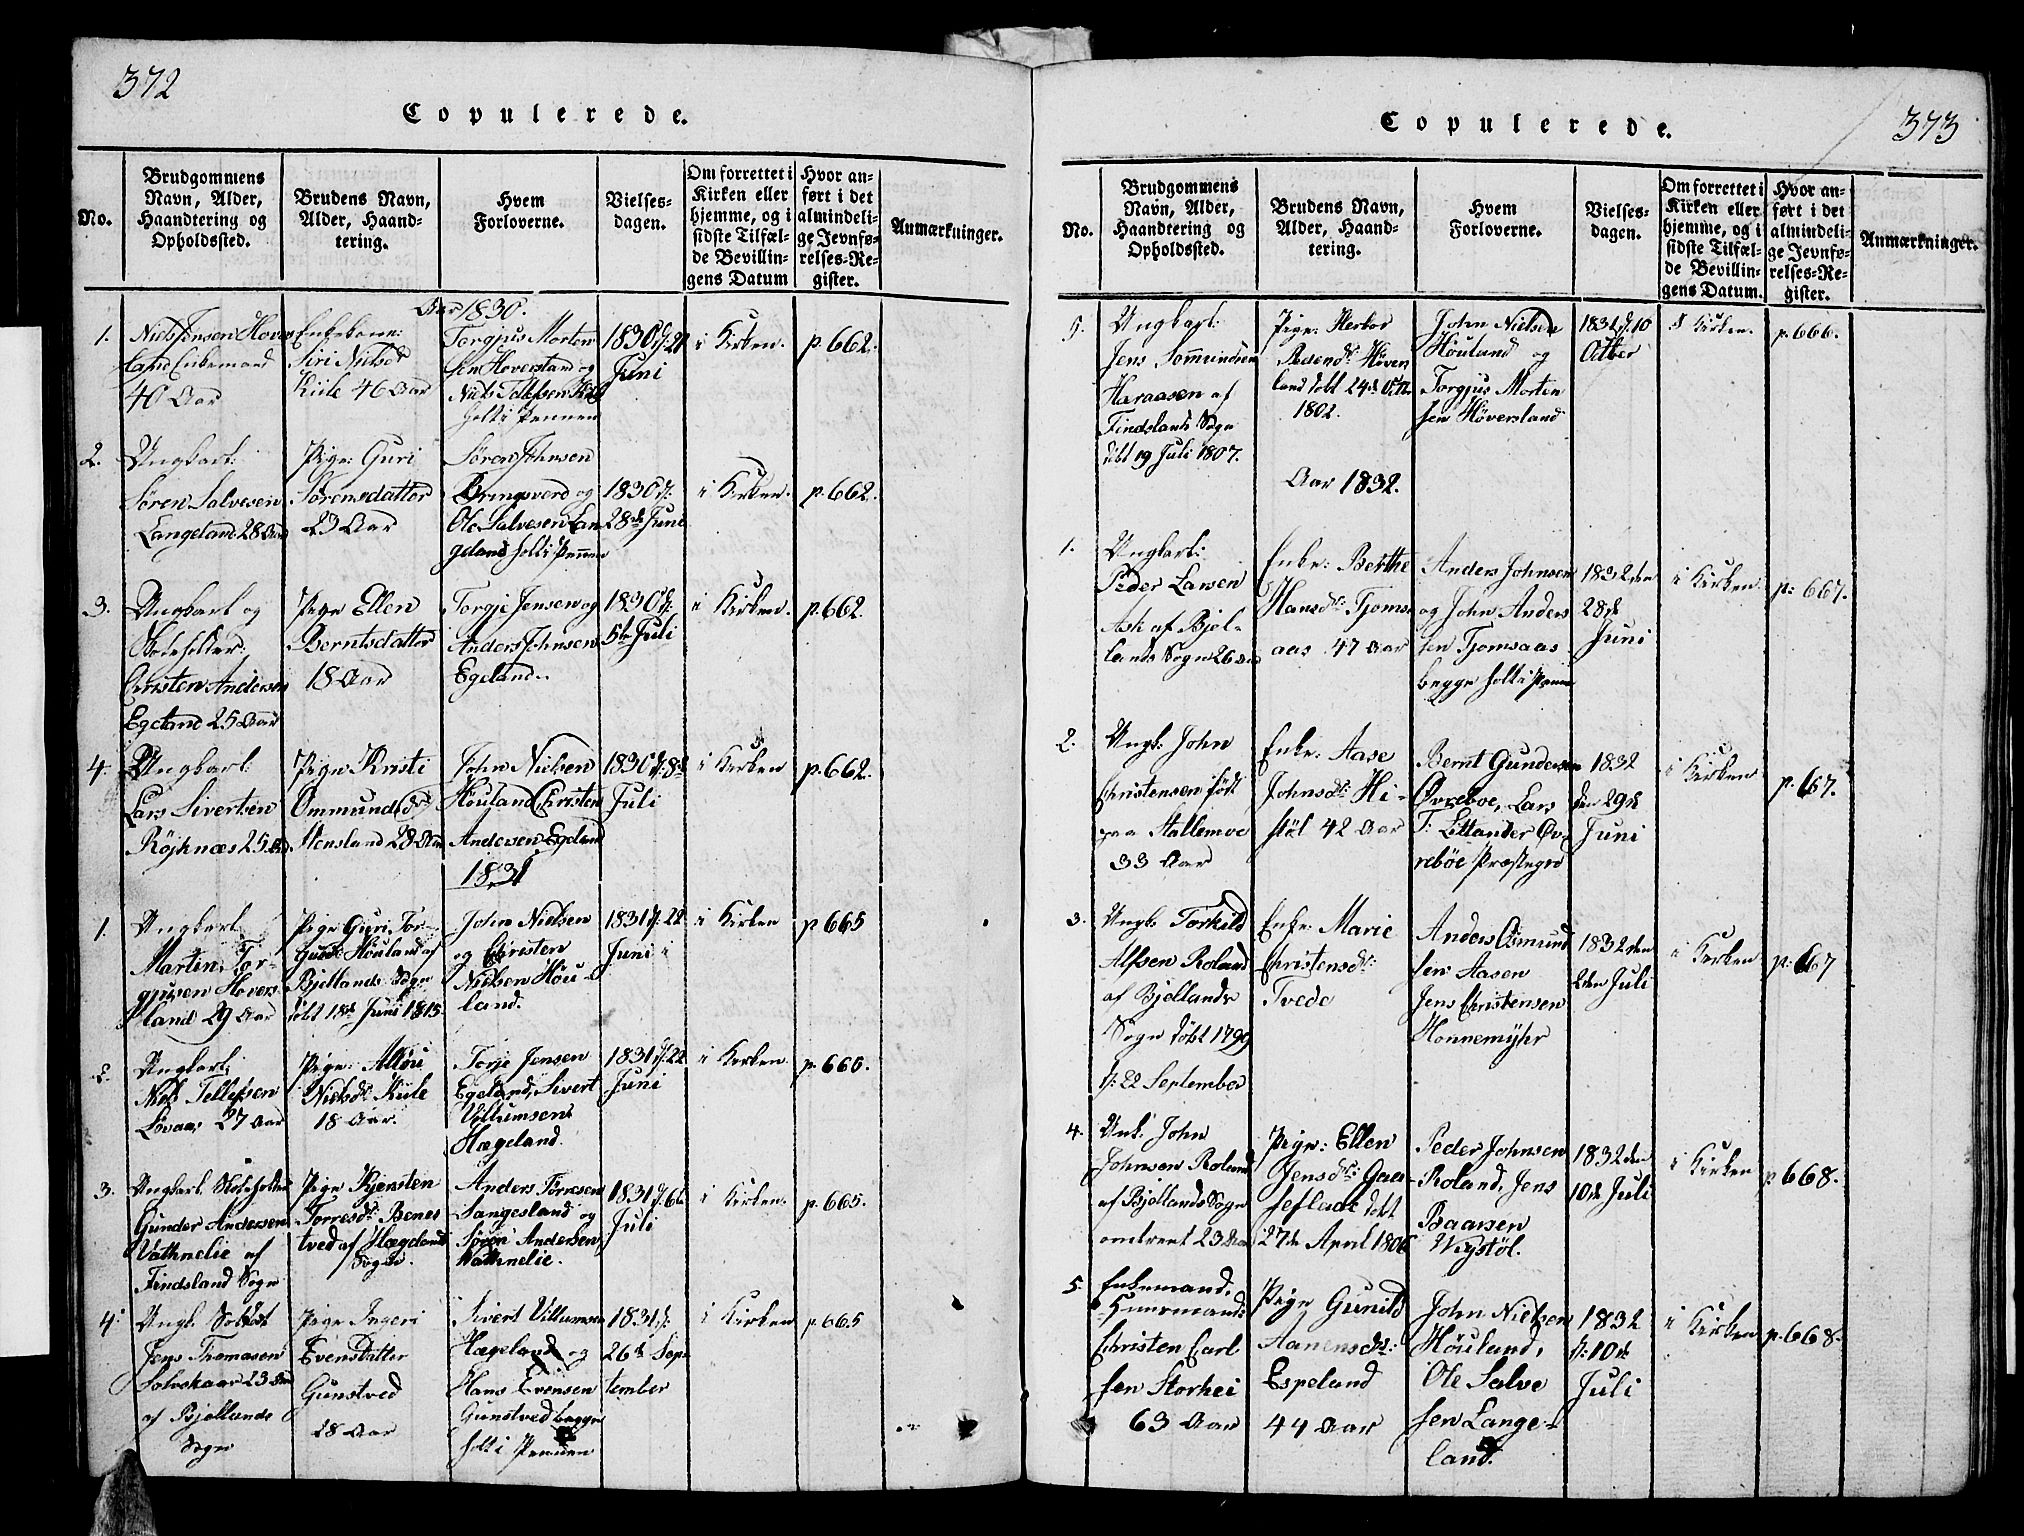 372
Copulerede.
No.
Brudgommens
Navn, Alder,
Haandtering og
Opholdssted.
Brudens Navn,
Alder, Haand-
tering.
Hvem
Forloverne.
Vielses-
dagen.
Om forrettet i
Kirken eller
hjemme, og i
sidste Tilfæl-
de Bevillin-
gens Datum
Hvor an-
ført i det
almindeli-
ge Jevnfø-
relses-Re-
gister.
Anmærkninger.
Aar 1830.
1.
Niels Jensen Hovers
land Enkemand
40 Aar
Enkekone:
Siri Nielsd
Kiile 46 Aar
Torgjus Morten
sen Høversland og
Niels Tellefsen
1830 d: 28
Juni
i Kirken
p. 662.
2.
Ungkarl:
Søren Salvesen
Langeland 28 Aar
Pige: Guri
Sørensdatter
23 Aar
Søren Johnsen
Bringsverd og
Ole Salvesen Lan
geland
1830 d:
28de Juni
i Kirken.
p. 662.
3.
Ungkarl og
Christen Andersen
Egeland 25 Aar
Pige Ellen
Berntsdatter
18 Aar
Torgje Jensen og
Anders Johnsen
Egeland.
1830 d:
5te Juli
i Kirken.
p. 662.
4.
Ungkarl:
Lars Sivertsen
Røsknæs 25 Aar
Pige Kristi
Ommundsdr
Stensland 28 Aar
John Nielsen
Høuland Christen
Andersen Egeland
1830 d: 8d
Juli
i Kirken
p. 662.
1831
1.
Ungkarl
Martin Tor-
gjusen Hovers
land 29 Aar
Pige Guri Tor-
Høuland af
Bjellands Sogn
døbt 18d Juni 1815
John Nielsen
og Christen
Nielsen Høu-
land.
1831 d: 22
Juni
i Kirken
p. 665
2.
Ungkarl:
Niels Tellefsen
Lövaas 27 Aar
Pige:
Nielsdr Kiile
18 Aar.
Torje Jensen
Egeland, Sivert
Villumsen
Hægeland.
1831 d: 22
Juni
i Kirken
p. 665.
3.
Ungkarl
Gunder Andersen
Vathnelie af
Findsland Sogn
Pige Kjersten
Torresdr Benes
tved af Hægeland
Sogn
Anders Torresen
Langesland og
Søren Andersen
Vathnelie.
1831 d: 6te
Juli
i Kirken.
p. 665.
4.
Ungk:
Jens Thomasen
Solvskaar 23 Aar
af Bjellande
Sogn
Pige Ingeri
Evensdatter
Gunstved
28 Aar
Sivert Villumsen
Hægeland og
Hans Evensen
Gunstved begge
1831 d:
26d Sep-
tember
i Kirken
p. 665
373
Copulerede.
No.
Brudgommens
Navn, Alder,
Haandtering og
Opholdssted.
Brudens Navn,
Alder, Haand-
tering.
Hvem
Forloverne.
Vielses-
dagen.
Om forrettet i
Kirken eller
hjemme, og i
sidste Tilfæl-
de Bevillin-
gens Datum.
Hvor an-
ført i det
almindeli-
ge Jevnfø-
relses-Re-
gister.
Anmærkninger.
5.
Ungkarl:
Jens Sommundsen
Haraasen af
Findslands Sogn
døbt 19 Juli 1807.
Pige: Herbor
Høver
land døbt 24d Octbr
1802.
John Nielsen
Høuland og
Torgjus Morten
sen Høversland
1831 d. 10
Octber
i Kirken.
p. 666.
Aar 1832.
1.
Ungkarl:
Peder Larsen
Ask af Bjel-
lands Sogn 26 Aar
Enke: Berthe
Hansdr: Tjoms-
aas 47 Aar
Anders Johnsen
og John Anders
sen Tjomsaas
begge
1832 den
28d
Juni
i Kirken
p: 667.
2.
Ungk: John
Christensen født
paa Stallemoe
33 Aar
Enke: Aase
Johnsdr: Hi-
støl 42 Aar
Bernt Gundersen
Øvreboe, Lars
Øv-
rebøe Præstegrd
1832
den 29d
Juni
i Kirken
p. 667.
3.
Ungk: Torkild
Alfsen Roland
af Bjellands
Sogn døbt 1799
d: 22 September
Enke: Marie
Christensdr:
Tvede
Anders Osmund
sen Aasen
Jens Christensen
Honnemyhr
1832 den
2den Juli
i Kirken
p: 667
4.
Unk: John
Johnsen Roland
af Bjellands Sogn
omtrent 23 Aar
Pige: Ellen
Jensdr: Gaas-
seflaae døbt
27de April 1806
Peder Johnsen
Roland, Jens
Baarsen
Vigstøl.
1832 den
10de Juli
i Kirken
p 668.
5.
Enkemand,
Christen Carl
sen Storhei
63 Aar
Pige Gunild
Aanensdr:
Espeland
44 Aar
John Nielsen
Høuland,
Ole Salve
sen Lange-
land.
1832
d: 10de
Juli
i Kirken
p. 668.